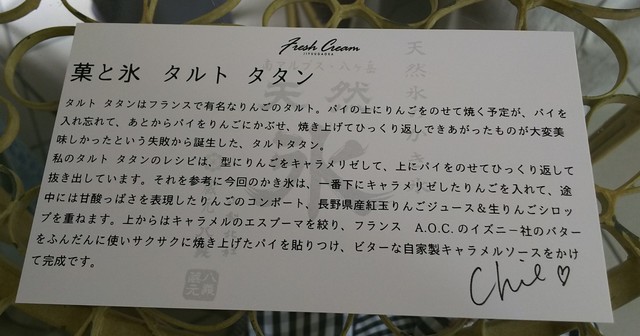 Fresh Cream
JIYUGAOKA
菓と氷 タルト タタン
タルト タタンはフランスで有名なりんごのタルト。パイの上にりんごをのせて焼く予定が、パイを
入れ忘れて、あとからパイをりんごにかぶせ、焼き上げてひっくり返しできあがったものが大変美
味しかったという失敗から誕生した、タルトタタン。
私のタルト タタンのレシピは、型にりんごをキャラメリゼして、上にパイをのせてひっくり返して
抜き出しています。それを参考に今回のかき氷は、一番下にキャラメリゼしたりんごを入れて、途
中には甘酸っぱさを表現したりんごのコンポート、長野県産紅玉りんごジュース＆生りんごシロッ
プを重ねます。上からはキャラメルのエスプーマを絞り、フランス A.O.C.のイズニー社のバター
をふんだんに使いサクサクに焼き上げたパイを貼りつけ、ビターな自家製キャラメルソースをかけ
て完成です。
Chie♡
南アルプス・八ヶ岳
天然
氷
天然氷